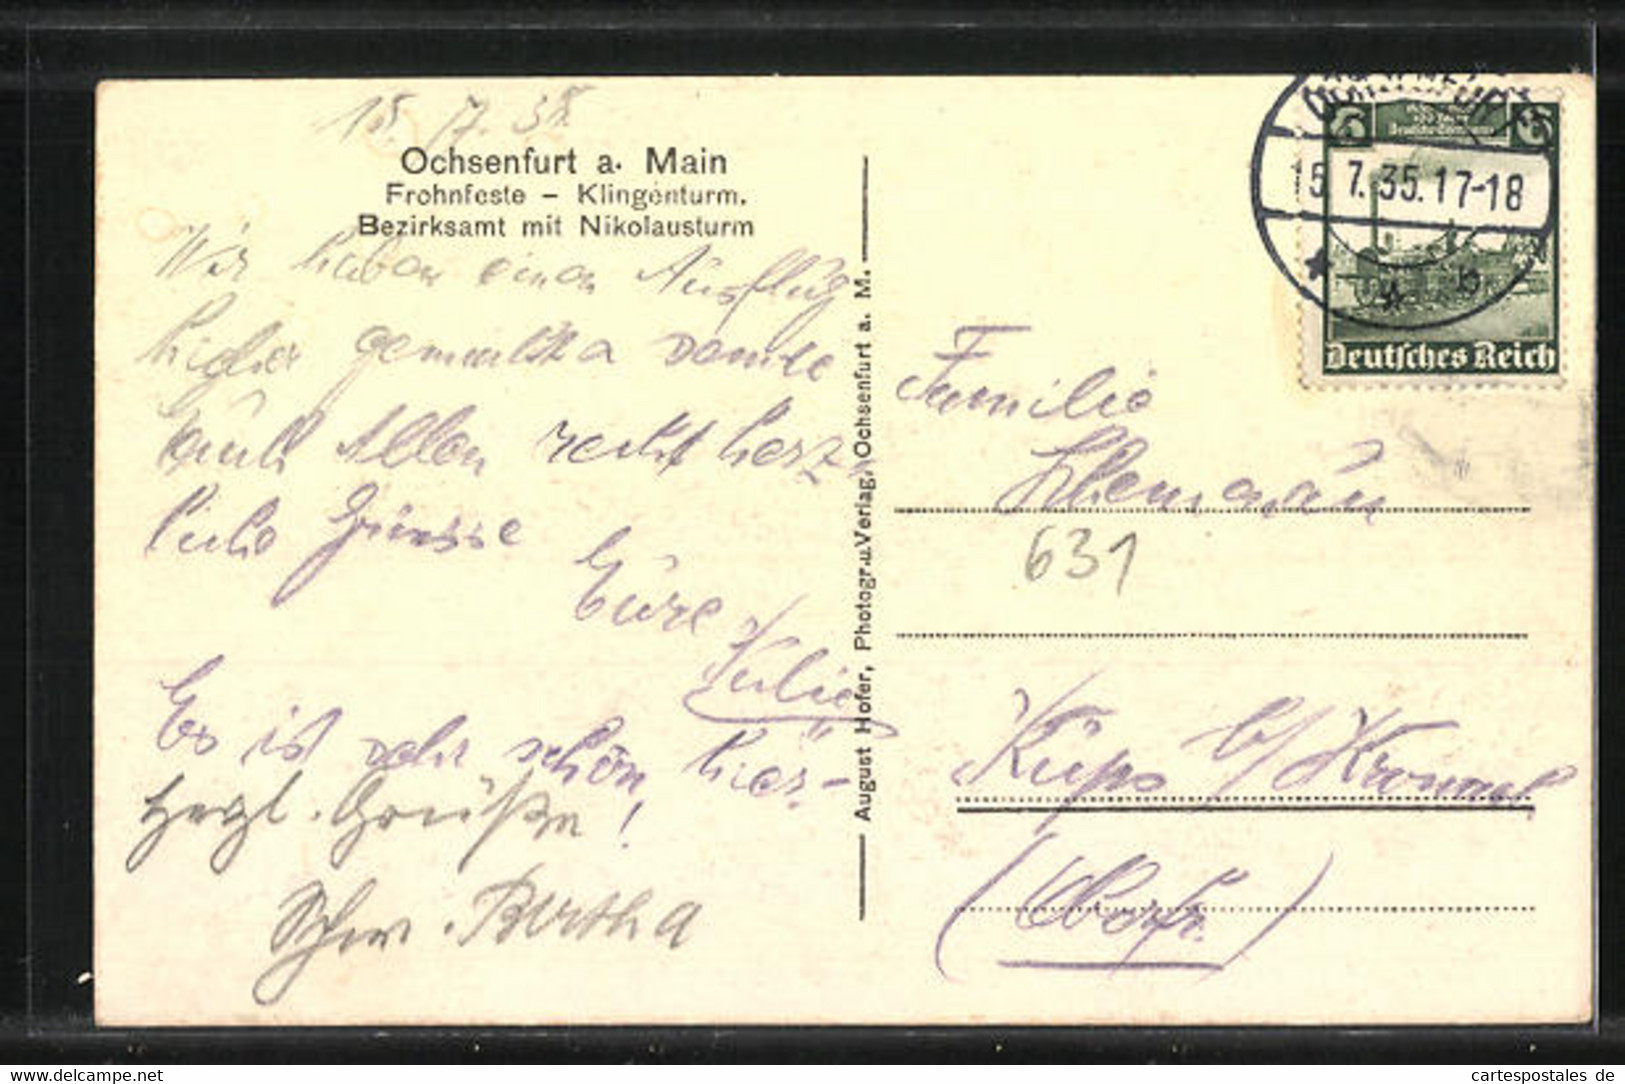 15. 7. 35
Ochsenfurt a. Main
Frohnfeste – Klingenturm.
Bezirksamt mit Nikolausturm
Wir haben einen Ausflug
hieher gemacht
Allen recht herz
liche Grüsse
Eure
Julie
Es ist sehr schön hier.–
Hrzl. Grüße!
Schw. Bertha
August Hofer, Photogr. u. Verlag, Ochsenfurt a. M.
15.7.35.17-18
* * b
6 6
Deutsches Reich
Familie
631
Küps b/ Kronach
(Oberfr.)
cartespostales de